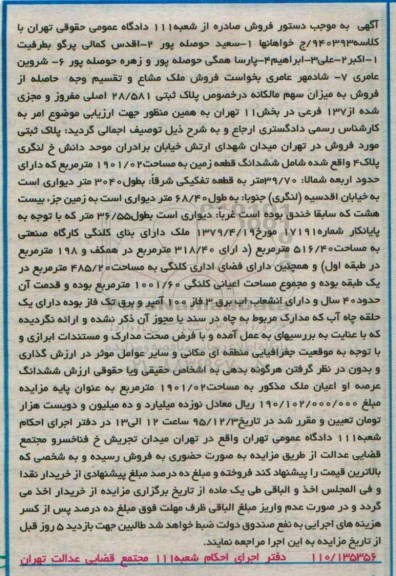 آگهی به موجب دستور فروش صادره از شعبه۱۱۱ دادگاه عمومی حقوقی تهران با
کلاسه۹۴۰۳۹۳/ج خواهانها ۱-سعید حوصله پور ۲-اقدس کمالی پرگو بطرفیت
۱-اکبر۲-علی۳-ابراهیم۴-پارسا همگی حوصله پور و زهره حوصله پور ۶- شروین
عامری ۷- شادمهر عامری بخواست فروش ملک مشاع و تقسیم وجه حاصله از
فروش به میزان سهم مالکانه درخصوص پلاک ثبتی ۲۸/۵۸۱ اصلی مفروز و مجزی
شده از۱۳۷ فرعی در بخش۱۱ تهران به همین منظور جهت ارزیابی موضوع امر به
کارشناس رسمی دادگستری ارجاع و به شرح ذیل توصیف اجمالی گردید: پلاک ثبتی
مورد فروش در تهران میدان شهدای ارتش خیابان برادران موحد دانش خ لنگری
پلاک۴ واقع شده شامل ششدانگ قطعه زمین به مساحت۱۹۰۱/۰۲ مترمربع که دارای
حدود اربعه شمالا: ۳۹/۷۰متر به قطعه تفکیکی شرقا: بطول۳۰۴۰ متر دیواری است
به خیابان اقدسیه (لنگری) جنوبا: به طول۶۸/۴۰ متر دیواری است به زمین جز، بیست
هشت که سابقا خندق بوده است غربا: دیواری است بطول۳۶/۵۵ متر که با توجه به
پایانکار شماره۱۷۱۹۱ مورخ۱۳۷۹/۴/۱۹ ملک دارای بنای کلنگی کارگاه صنعتی
به مساحت۵۱۶/۴۰ مترمربع (د ارای ۳۱۸/۴۰ مترمربع در همکف و ۱۹۸ مترمربع
در طبقه اول) و همچنین دارای فضای اداری کلنگی به مساحت۴۸۵/۲۰ مترمربع در
یک طبقه بوده و مجموع مساحت اعیانی کلنگی ۱۰۰۱/۶۰ مترمربع بوده و قدمت آن
حدود۴۰ سال و دارای انشعاب اب برق ۳ فاز ۱۰۰ آمپر و برق تک فاز بوده دارای یک
حلقه چاه آب که مدارک مربوط به چاه در سند یا مجوز آن ذکر نشده و ارائه نگردیده
که با عنایت به بررسیهای به عمل آمده و با فرض صحت مدارک و مستندات ابرازی و
با توجه به موقعیت جغرافیایی منطقه ای مکانی و سایر عوامل موثر در ارزش گذاری
و بدون در نظر گرفتن هرگونه بدهی به اشخاص حقیقی ویا حقوقی ارزش ششدانگ
عرصه او اعیان ملک مذکور به مساحت۱۹۰۱/۰۲ مترمربع به عنوان پایه مزایده
مبلغ ۱۹۰/۱۰۲/۰۰۰/۰۰۰ ریال معادل نوزده میلیارد و ده میلیون و دویست هزار
تومان تعیین و مقرر شد در تاریخ۹۵/۱۲/۳ ساعت ۱۲ الی۱۳ در دفتر اجرای احکام
شعبه۱۱۱ دادگاه عمومی تهران واقع در تهران میدان تجریش خ فناخسرو مجتمع
قضایی عدالت از طریق مزایده به صورت حضوری به فروش رسیده و به شخصی که
بالاترین قیمت را پیشنهاد کند فروخته و مبلغ ده درصد مبلغ پیشنهادی از خریدار نقدا
و فی المجلس اخذ و الباقی طی یک ماده از تاریخ برگزاری مزایده از خریدار اخذ می
گردد و در صورت عدم واریز مبلغ الباقی ظرف مهلت فوق مبلغ ده درصد پس از کسر
هزینه های اجرایی به نفع صندوق دولت ضبط خواهد شد طالبین جهت بازدید ۵ روز قبل
از تاریخ مزایده به این اجرا مراجعه نمایند.
۱۱۰/۱۳۵۳۵۶ دفتر اجرای احکام شعبه۱۱۱ مجتمع قضایی عدالت تهران